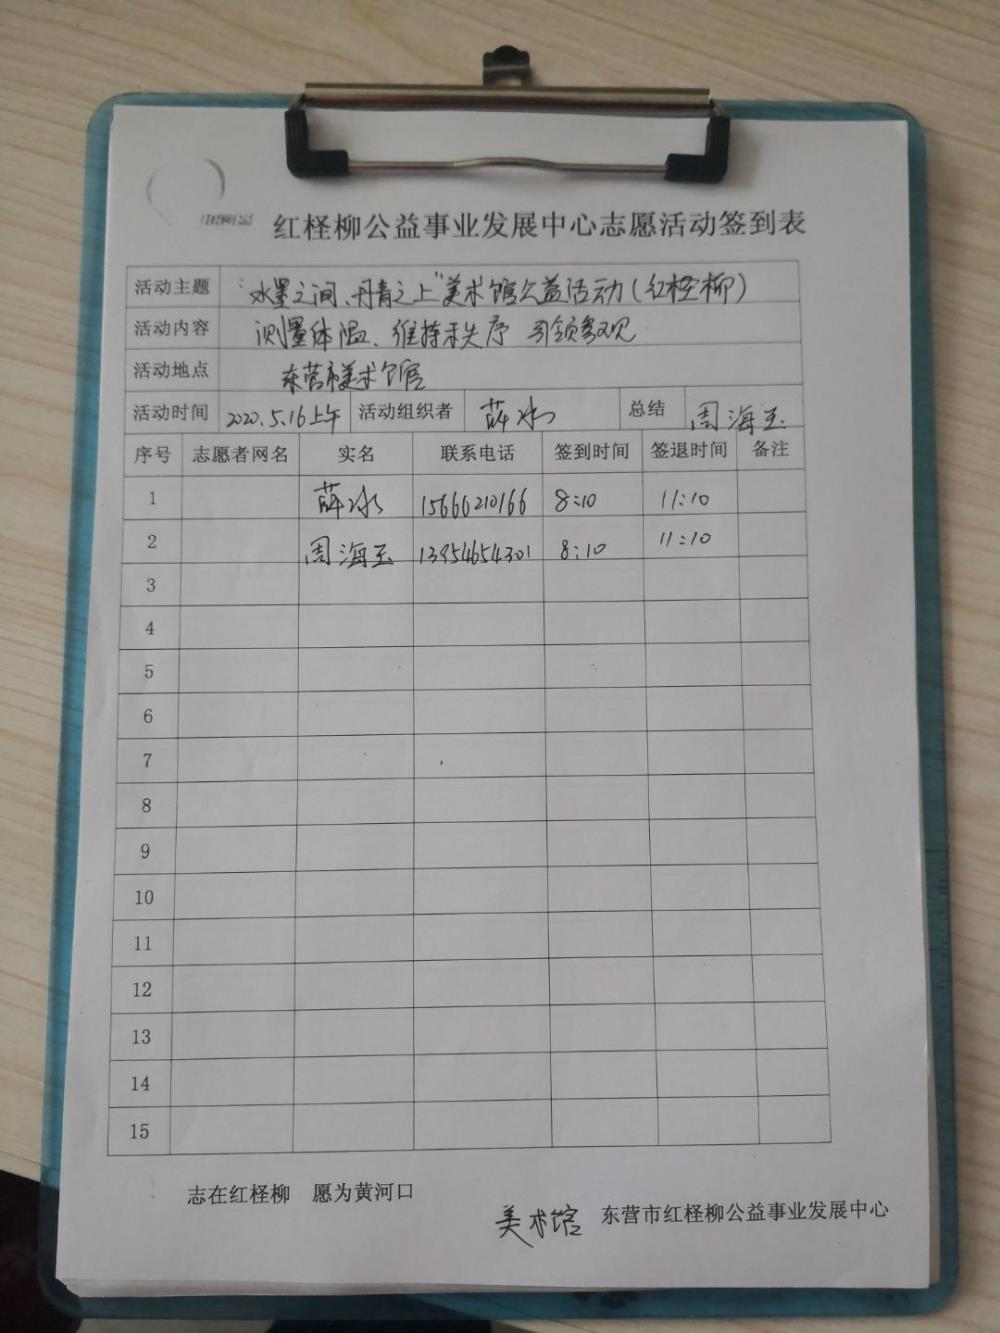 红柽柳公益事业发展中心志愿活动签到表
活动主题 “水墨之间、丹青之上”美术馆公益活动(红柽柳)
活动内容 测量体温、维持秩序 引领参观
活动地点 东营市美术馆
活动时间 2020.5.16上午 活动组织者 薛冰 总结 周海玉
序号 志愿者网名 实名 联系电话 签到时间 签退时间 备注
1 薛冰 15666210166 8:10 11:10
2 周海玉 13954654301 8:10 11:10
3
4
5
6
7
8
9
10
11
12
13
14
15
志在红柽柳 愿为黄河口
美术馆 东营市红柽柳公益事业发展中心